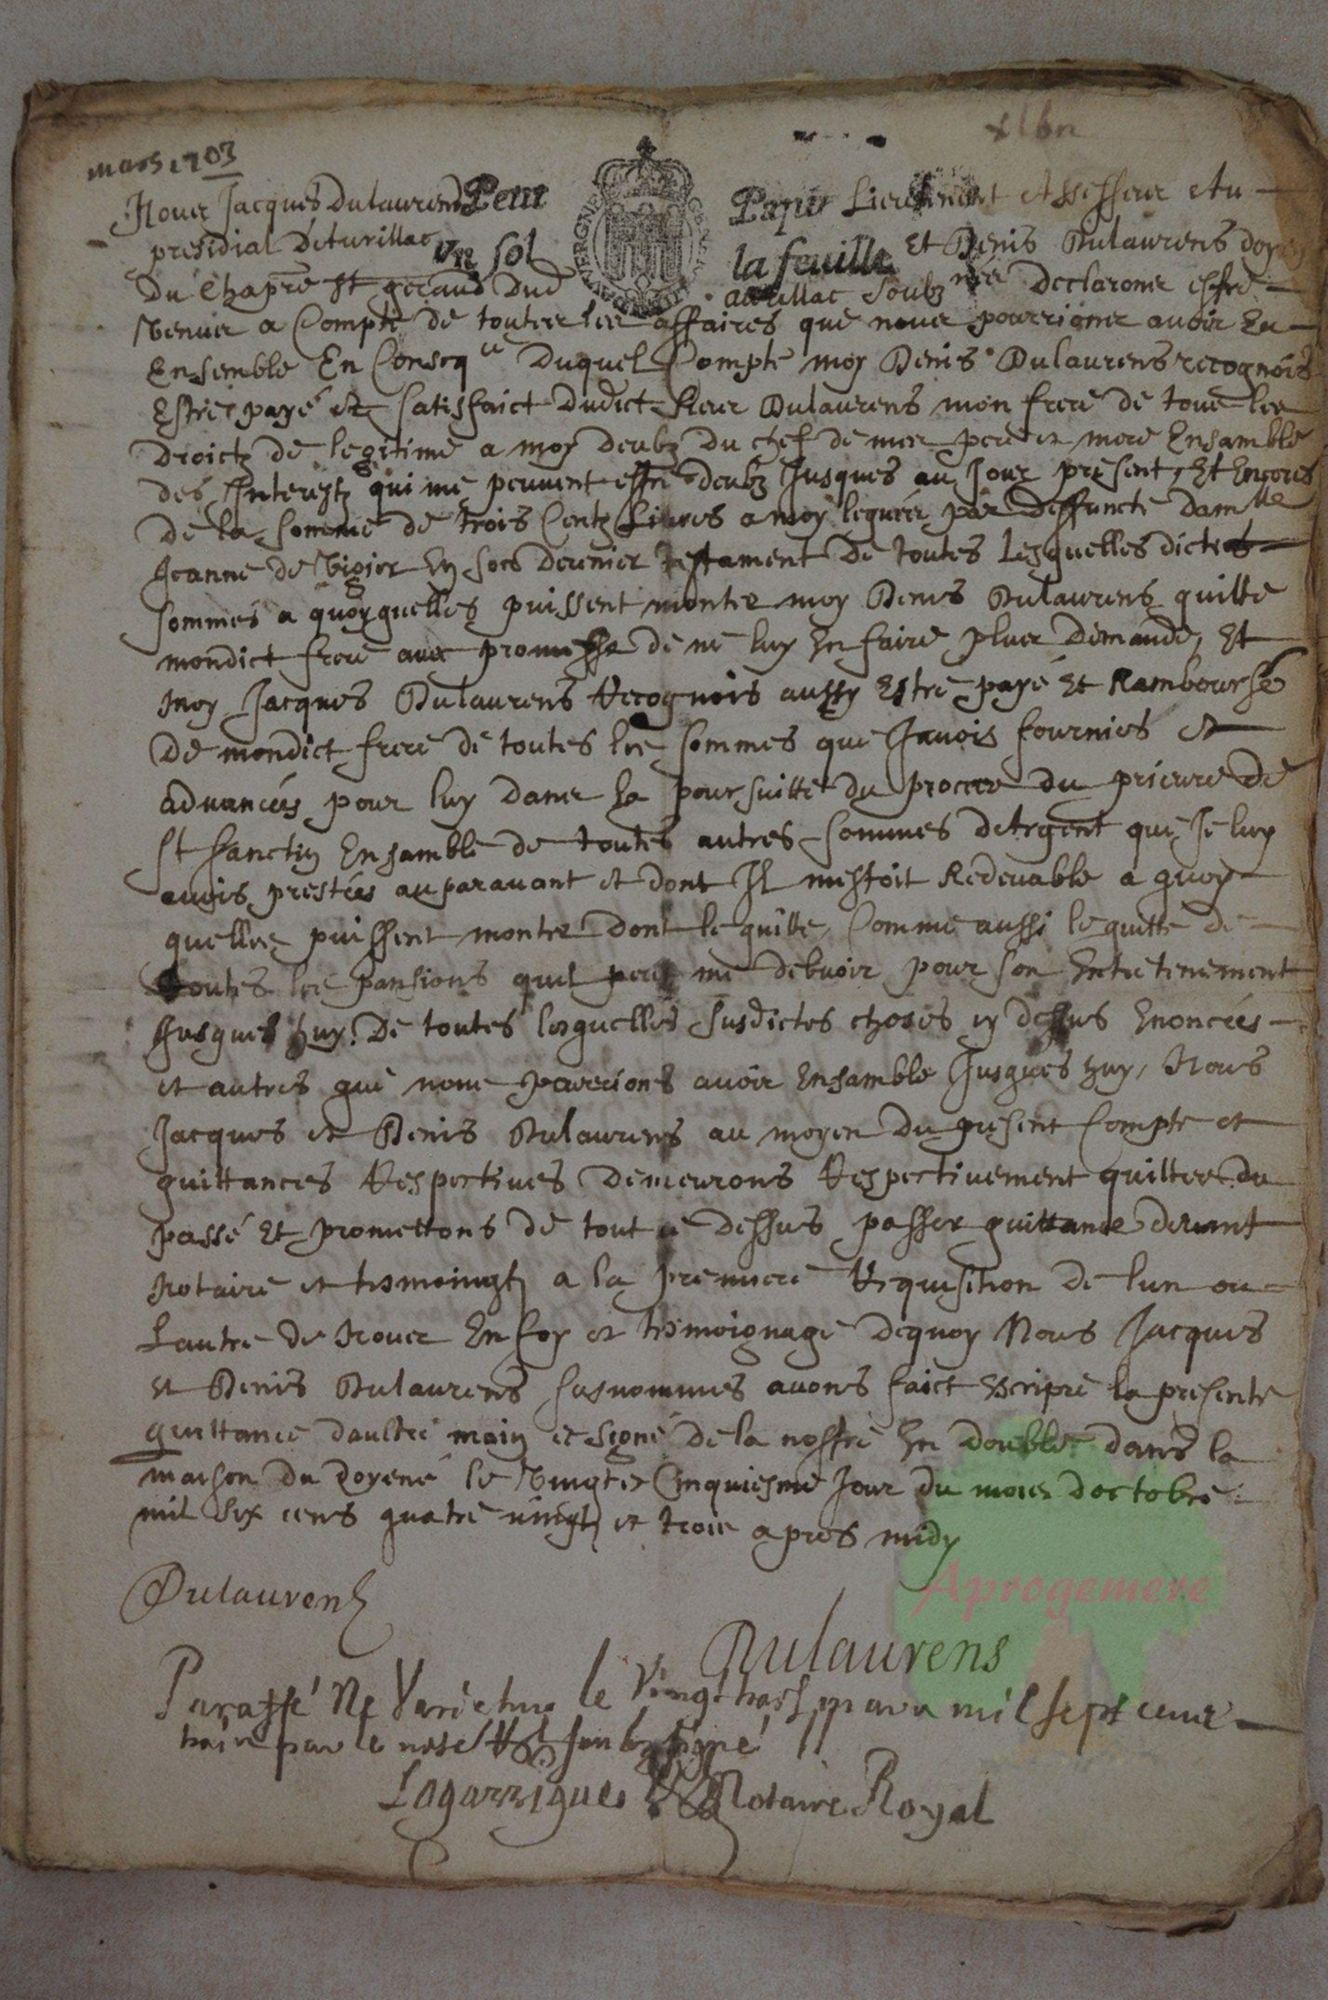 mars 1703
Nous Jacques Dulaurens Petit Papier Lieutenant Assesseur Au
presidial Daurillac Vn sol la feuille Et Denis Dulaurens doyen
Du Chapre St geraud Dud aurillac soubznés Declarons estre
Venus a Compte de toutes les affaires que nous pourrions avoir Eu
Ensemble En Conseqce Duquel Compte moy Denis Dulaurens recognois
Estre payé et satisfaict Dudict sieur Dulaurens mon frere de tous les
Droictz de legitime a moy deubz du chef de mes pere et mere Ensamble
des Interestz qui me peuvent estre deubz Jusques au Jour present, Et Encores
De la somme de trois Centz Livres a moy leguée par deffuncte damlle
Jeanne de Vigier En son dernier testament De toutes Lesquelles dictes
sommes a quoy quelles puissent monter moy Denis Dulaurens quitte
mondict frere avec promesse de ne luy En faire plus demande, Et
moy Jacques Dulaurens Recognois aussy Estre payé Et Rambourse
De mondict frere de toutes les sommes que Javois fournies et
advancées pour luy dans la poursuitte du proces du prieure de
St Sanctin Ensamble de toutes autres sommes dArgent que Je luy
avois prestées auparavant et dont Il mestoit Redevable a quoy
quelles puissent monter dont le quitte, Comme aussi le quitte de
toutes les pansions quil peut me debvoir pour son Entretenement
Jusques huy. De toutes lesquelles susdictes choses cy dessus Enoncées
et autres que nous pourrions avoir Ensamble Jusques huy, Nous
Jacques et Denis Dulaurens au moyen du present Compte et
quittances Respectives Demeurons Respectivement quittes du
passé Et promettons de tout ce dessus passer quittance devant
Notaire et tesmoingtz a la premiere Requisition de lun ou
Lautre de Nous En foy et tesmoignage dequoy Nous Jacques
et Denis Dulaurens susnommes avons faict Escripre la presente
quittance daultre main et signé De la nostre En double dans la
maison du doyené le Vingt et Cinquiesme Jour du mois doctobre
mil six cens quatre vingtz et trois apres midy
Dulaurens
Dulaurens
Aprogemere
Paraffé Ne Varietur le Vingt trois mars mil sept cens
trois par le note Rl soubzsigné
Lagarrigues Notaire Royal